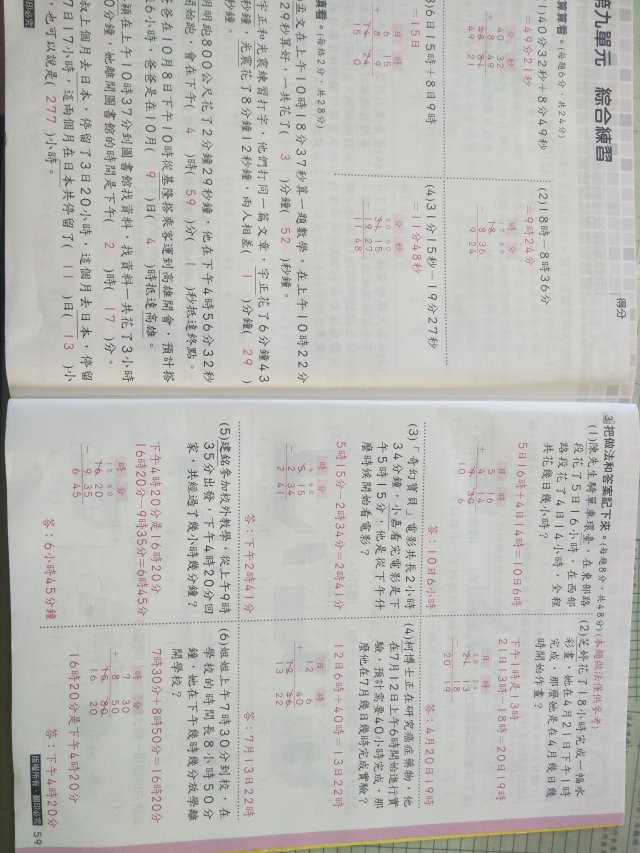 第九單元 綜合練習
得分
算算看。(每題6分,共24分)
(1)40分32秒+8分49秒
=49分21秒
分 秒
40 32
+ 8 49
48 81
49 21
(2)18時-8時36分
=9時24分
時 分
17 60
18
- 8 36
9 24
3)6日15時+8日9時
=15日
日 時
6 15
+ 8 9
14 24
15 0
(4)31分15秒-19分27秒
=11分48秒
分 秒
30 60
31 15
- 19 27
11 48
算看。(每格2分,共28分)
孟文在上午10時18分37秒算一題數學,在上午10時22分
29秒算好,一共花了( 3 )分鐘( 52 )秒鐘。
宇正和光震練習打字,他們打同一篇文章,宇正花了6分鐘43
秒鐘,光震花了8分鐘12秒鐘,兩人相差( 1 )分鐘( 29 )
秒鐘。
明明跑800公尺花了2分鐘29秒鐘,他在下午4時56分32秒
開始跑,會在下午( 4 )時( 59 )分( 1 )秒抵達終點。
爸爸在10月8日下午10時從基隆搭乘客運到高雄開會,預計搭
乘6小時,爸爸在10月( 9 )日( 4 )時抵達高雄。
穎在上午10時37分到圖書館找資料,找資料一共花了3小時
0分鐘,她離開圖書館的時間是下午( 2 )時( 17 )分。
叔上個月去日本,停留了3日20小時,這個月去日本,停留
7日17小時,這兩個月在日本共停留了( 11 )日( 13 )小
,也可以說是( 277 )小時。
3 把做法和答案記下來。(每題8分,共48分)(本題做法僅供參考)
(1)陳先生騎單車環臺,在東部路
段花了5日16小時,在西部
路段花了4日14小時,全程
共花幾日幾小時?
5日16時+4日14時=10日6時
日 時
5 16
+ 4 14
9 30
10 6
答:10日6小時
(2)芝婷花了18小時完成一幅水
彩畫,她在4月21日下午1時
完成,那麼她是在4月幾日幾
時開始作畫?
下午1時是13時
21日13時-18時=20日19時
日 時
20 24
21 13
- 18
20 19
答:4月20日19時
(3)「奇幻寶貝」電影共長2小時
34分鐘,小嘉看完電影是下
午5時15分,他是從下午什
麼時候開始看電影?
5時15分-2時34分=2時41分
時 分
4 60
5 15
- 2 34
2 41
答:下午2時41分
(4)柯博士正在研究癌症藥物,他
在7月12日上午6時開始進行實
驗,預計需要40小時完成,那
麼他在7月幾日幾時完成實驗?
12日6時+40時=13日22時
日 時
12 6
+ 40
12 46
13 22
答:7月13日22時
(5)建銘參加校外教學,從上午9時
35分出發,下午4時20分回
家,共經過了幾小時幾分鐘?
下午4時20分是16時20分
16時20分-9時35分=6時45分
時 分
15 60
16 20
- 9 35
6 45
答:6小時45分鐘
(6)姐姐上午7時30分到校,在
學校的時間長8小時50分
鐘,她在下午幾時幾分放學離
開學校?
7時30分+8時50分=16時20分
時 分
7 30
+ 8 50
15 80
16 20
16時20分是下午4時20分
答:下午4時20分
版權所有.翻印必究 59